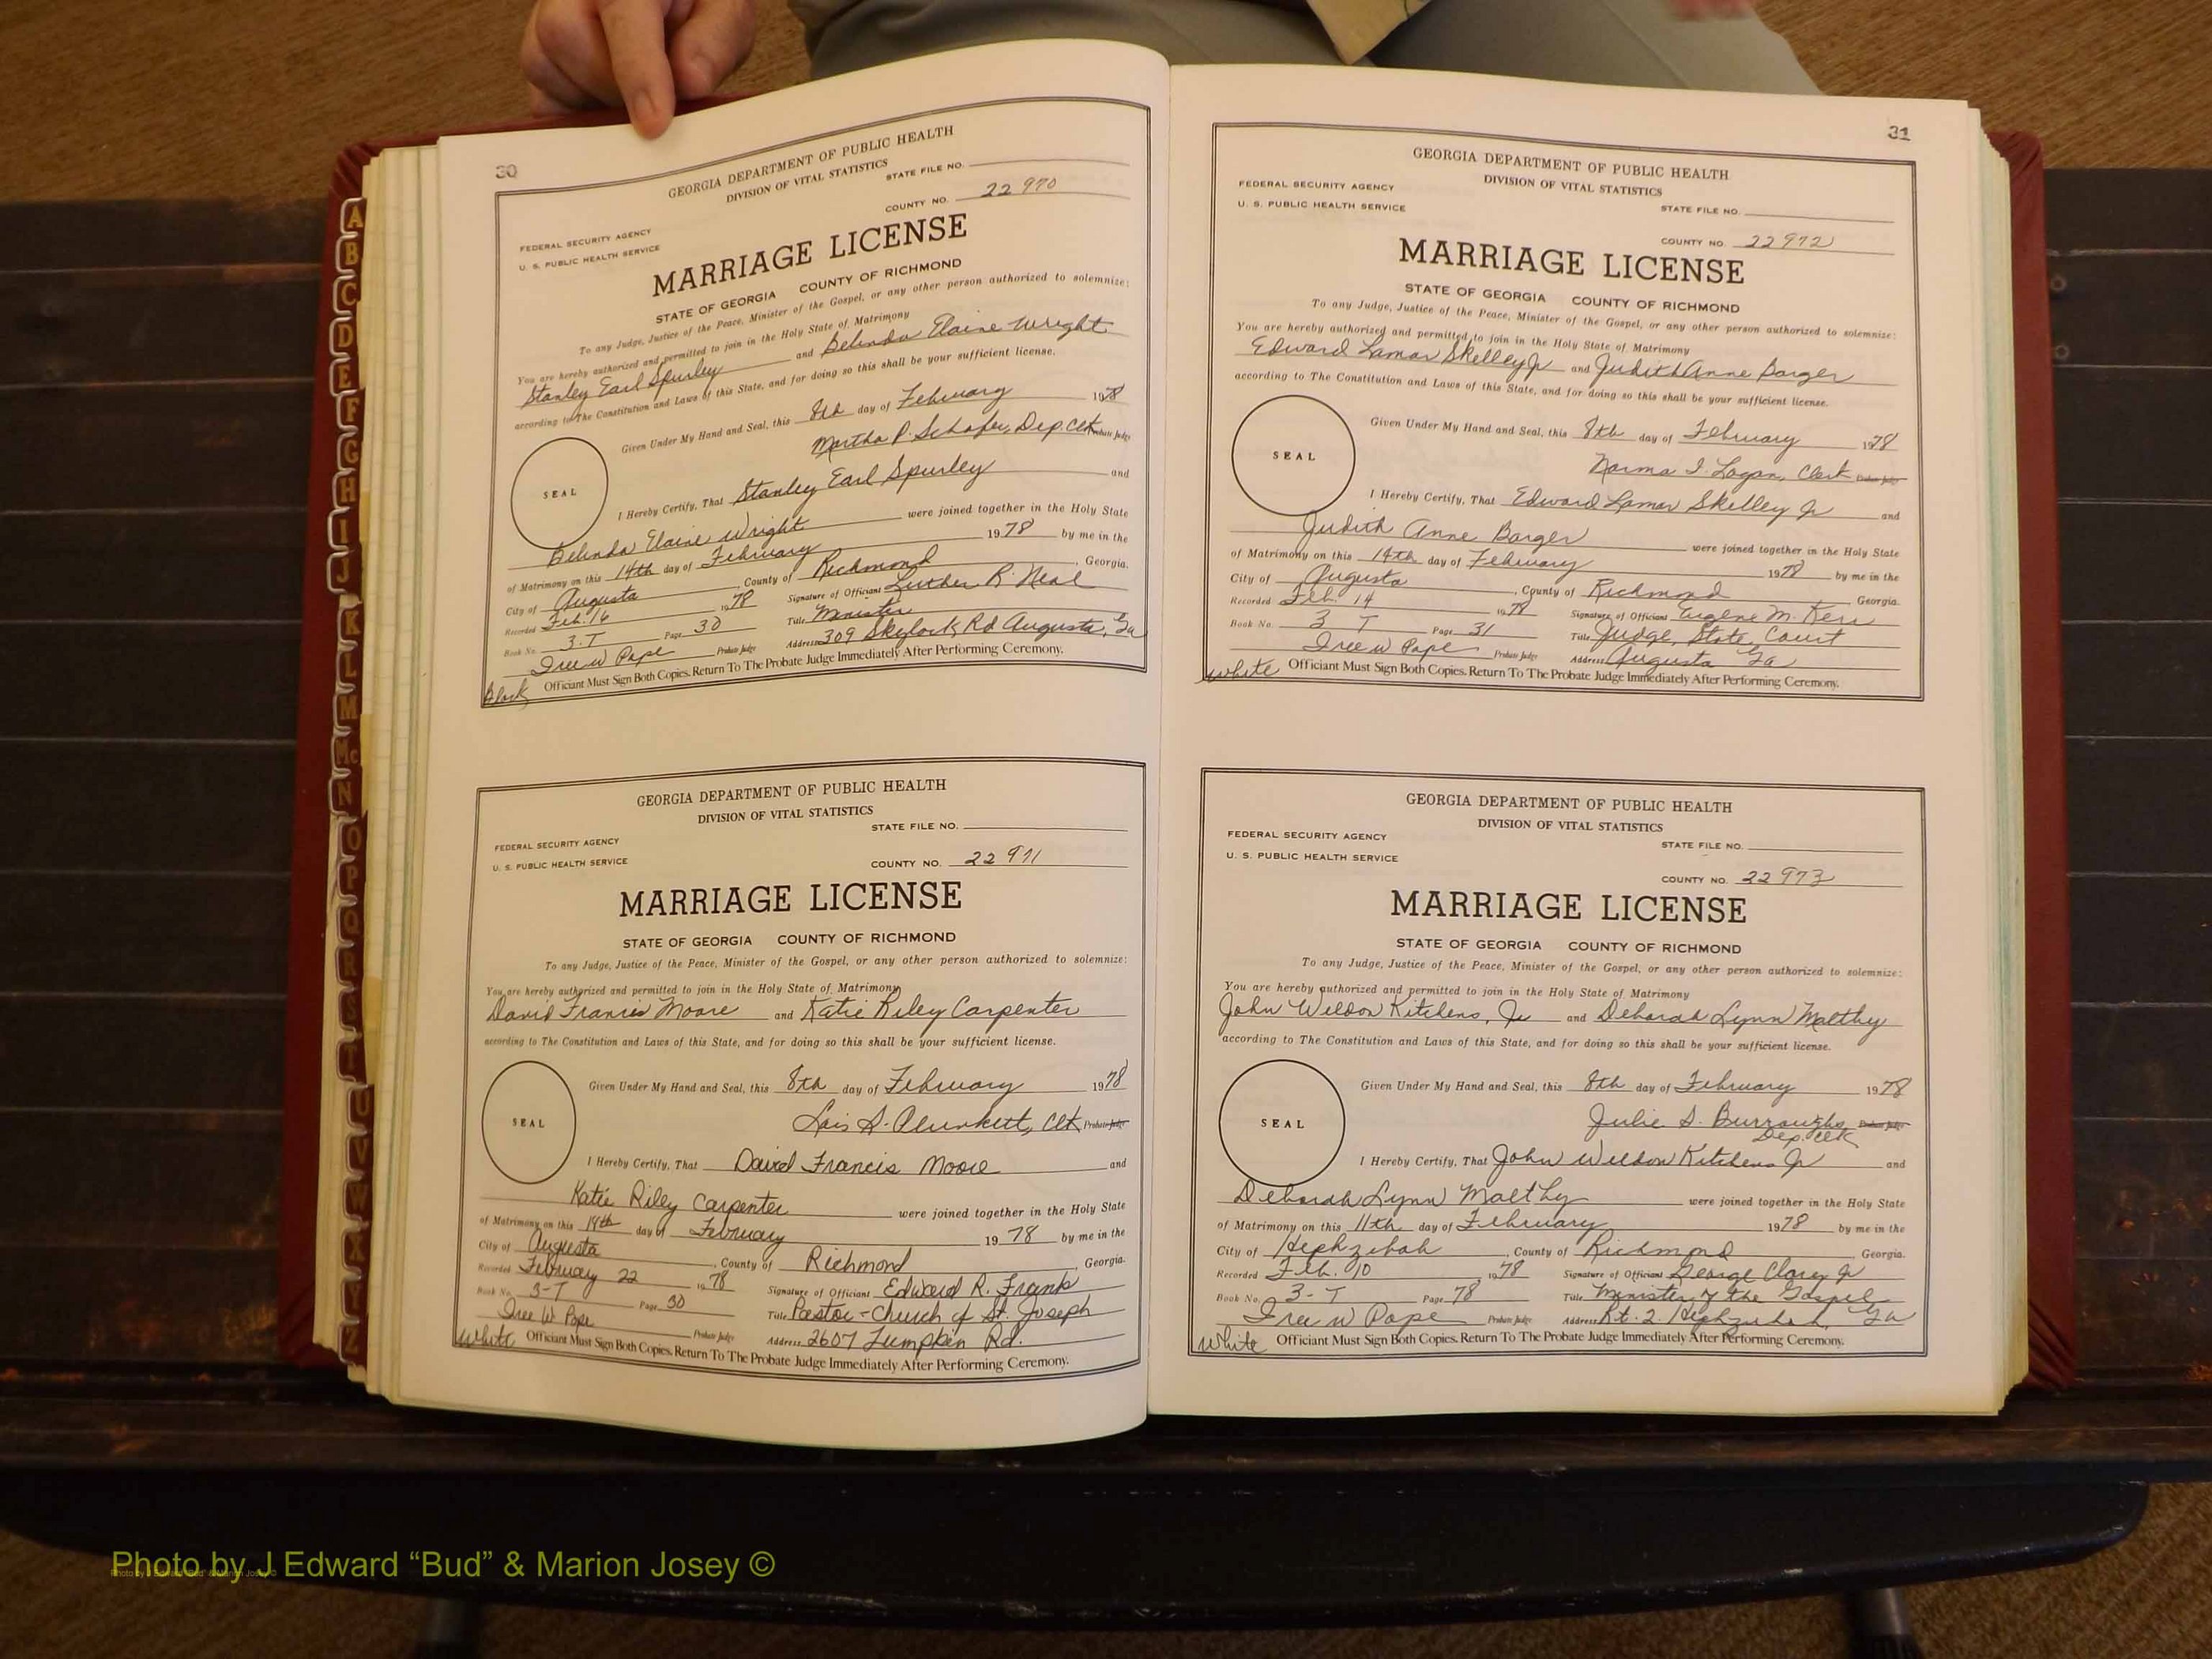 A
B
C
D
E
F
G
H
I
J
K
L
M
Mc
N
O
P
Q
R
S
T
U
V
W
X
Y
Z
30
GEORGIA DEPARTMENT OF PUBLIC HEALTH
DIVISION OF VITAL STATISTICS
STATE FILE NO.
FEDERAL SECURITY AGENCY
U. S. PUBLIC HEALTH SERVICE
COUNTY NO. 22 970
MARRIAGE LICENSE
STATE OF GEORGIA COUNTY OF RICHMOND
To any Judge, Justice of the Peace, Minister of the Gospel, or any other person authorized to solemnize:
You are hereby authorized and permitted to join in the Holy State of Matrimony
Stanley Earl Spurley and Belinda Elaine Wright
according to The Constitution and Laws of this State, and for doing so this shall be your sufficient license.
Given Under My Hand and Seal, this 8th day of February 1978
Martha P. Schafer, Dep. Clk Probate Judge
SEAL
I Hereby Certify, That Stanley Earl Spurley and
Belinda Elaine Wright were joined together in the Holy State
of Matrimony on this 14th day of February 1978 by me in the
City of Augusta, County of Richmond, Georgia.
Recorded Feb. 16 1978 Signature of Officiant Luther R. Neal
Book No. 3-T Page 30 Title Minister
Iree W Pope Probate Judge Address 309 Skylark Rd Augusta, Ga
Black Officiant Must Sign Both Copies. Return To The Probate Judge Immediately After Performing Ceremony.
GEORGIA DEPARTMENT OF PUBLIC HEALTH
DIVISION OF VITAL STATISTICS
STATE FILE NO.
FEDERAL SECURITY AGENCY
U. S. PUBLIC HEALTH SERVICE
COUNTY NO. 22 971
MARRIAGE LICENSE
STATE OF GEORGIA COUNTY OF RICHMOND
To any Judge, Justice of the Peace, Minister of the Gospel, or any other person authorized to solemnize:
You are hereby authorized and permitted to join in the Holy State of Matrimony
David Francis Moore and Katie Riley Carpenter
according to The Constitution and Laws of this State, and for doing so this shall be your sufficient license.
Given Under My Hand and Seal, this 8th day of February 1978
Lois S. Plunkett, Clk Probate Judge
SEAL
I Hereby Certify, That David Francis Moore and
Katie Riley Carpenter were joined together in the Holy State
of Matrimony on this 14th day of February 1978 by me in the
City of Augusta, County of Richmond, Georgia.
Recorded February 22 1978 Signature of Officiant Edward R. Frank
Book No. 3-T Page 30 Title Pastor - Church of St. Joseph
Iree W Pope Probate Judge Address 2607 Lumpkin Rd.
White Officiant Must Sign Both Copies. Return To The Probate Judge Immediately After Performing Ceremony.
31
GEORGIA DEPARTMENT OF PUBLIC HEALTH
DIVISION OF VITAL STATISTICS
FEDERAL SECURITY AGENCY
U. S. PUBLIC HEALTH SERVICE
STATE FILE NO.
COUNTY NO. 22972
MARRIAGE LICENSE
STATE OF GEORGIA COUNTY OF RICHMOND
To any Judge, Justice of the Peace, Minister of the Gospel, or any other person authorized to solemnize:
You are hereby authorized and permitted to join in the Holy State of Matrimony
Edward Lamar Skelley Jr and Judith Anne Barger
according to The Constitution and Laws of this State, and for doing so this shall be your sufficient license.
Given Under My Hand and Seal, this 8th day of February 1978
Norma I. Logan, Clerk Probate Judge
SEAL
I Hereby Certify, That Edward Lamar Skelley Jr and
Judith Anne Barger were joined together in the Holy State
of Matrimony on this 14th day of February 1978 by me in the
City of Augusta, County of Richmond Georgia.
Recorded Feb. 14 1978 Signature of Officiant Eugene M. Kerr
Book No. 3 T Page 31 Title Judge, State, Court
Iree W Pope Probate Judge Address Augusta Ga
White Officiant Must Sign Both Copies. Return To The Probate Judge Immediately After Performing Ceremony.
GEORGIA DEPARTMENT OF PUBLIC HEALTH
DIVISION OF VITAL STATISTICS
FEDERAL SECURITY AGENCY
U. S. PUBLIC HEALTH SERVICE
STATE FILE NO.
COUNTY NO. 22973
MARRIAGE LICENSE
STATE OF GEORGIA COUNTY OF RICHMOND
To any Judge, Justice of the Peace, Minister of the Gospel, or any other person authorized to solemnize:
You are hereby authorized and permitted to join in the Holy State of Matrimony
John Weldon Kitchens, Jr and Deborah Lynn Malthy
according to The Constitution and Laws of this State, and for doing so this shall be your sufficient license.
Given Under My Hand and Seal, this 8th day of February 1978
Julie S. Burroughs Probate Judge
Dep. Clk
SEAL
I Hereby Certify, That John Weldon Kitchens Jr and
Deborah Lynn Malthy were joined together in the Holy State
of Matrimony on this 11th day of February 1978 by me in the
City of Hephzibah, County of Richmond, Georgia.
Recorded Feb. 10 1978 Signature of Officiant George Clary Jr
Book No. 3-T Page 78 Title Minister of the Gospel
Iree W Pope Probate Judge Address Rt. 2. Hephzibah, Ga
White Officiant Must Sign Both Copies. Return To The Probate Judge Immediately After Performing Ceremony.
Photo by J Edward “Bud” & Marion Josey ©
Photo by J Edward "Bud" & Marion Josey ©